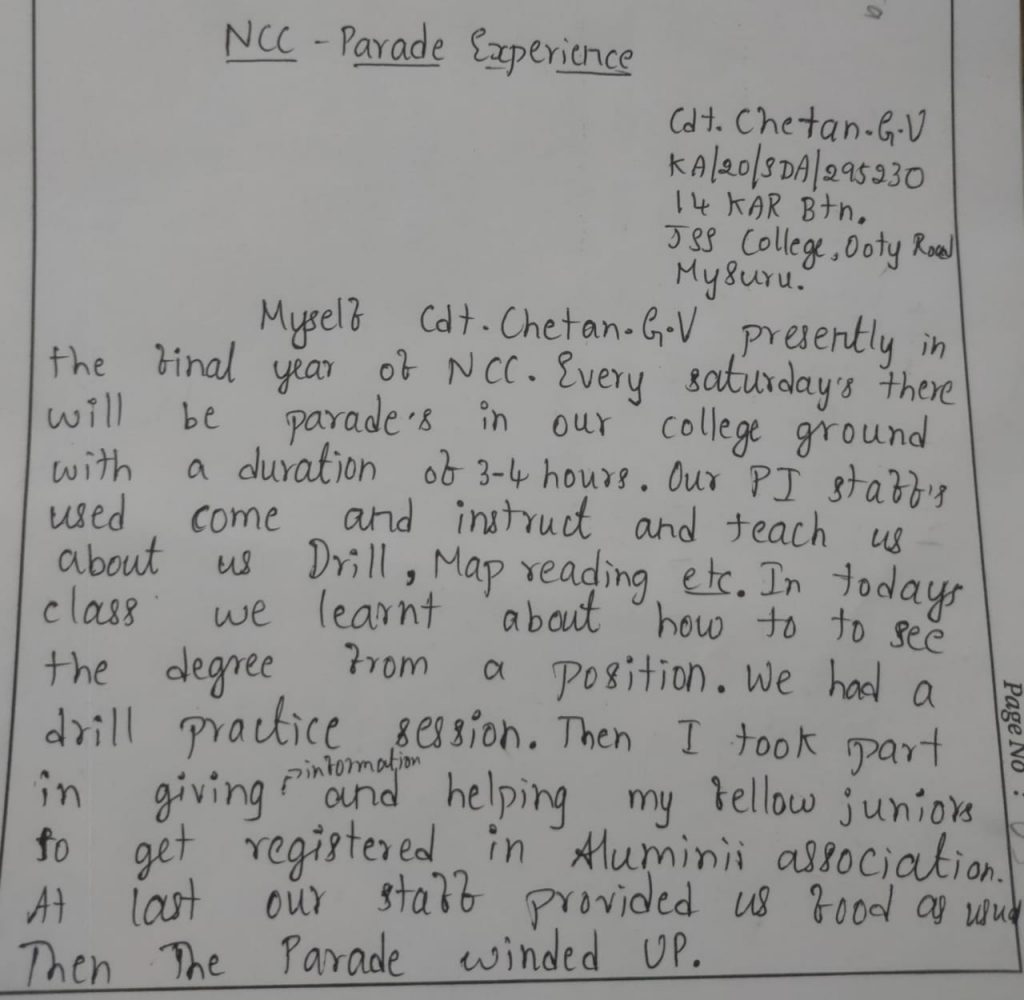 NCC - Parade Experience
Cdt. Chetan.G.V
KA/20/SDA/295230
14 KAR Btn.
JSS College, Ooty Road
Mysuru.
Myself Cdt. Chetan.G.V presently in
the final year of NCC. Every saturday's there
will be parade's in our college ground
with a duration of 3-4 hours. Our PI staff's
used come and instruct and teach us
about us Drill, Map reading etc. In todays
class we learnt about how to to see
the degree from a position. We had a
drill practice session. Then I took part
in giving information and helping my fellow juniors
to get registered in Aluminii association.
At last our staff provided us food as usual
Then The Parade winded UP.
Page No :